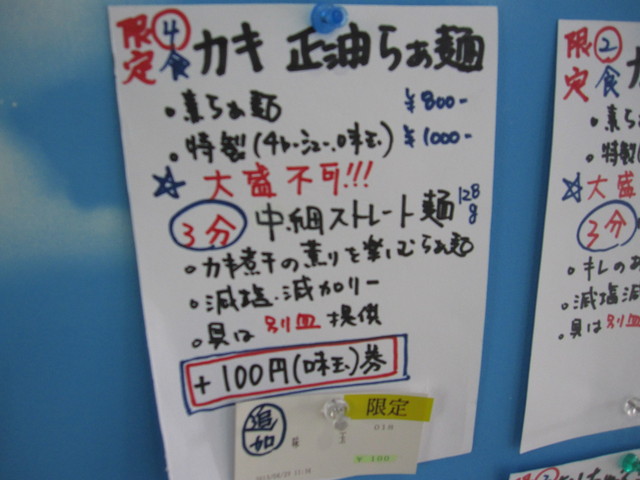 限定 ④食 カキ 正油らぁ麺
・素らぁ麺 ¥800-
・特製(チャーシュー、味玉) ¥1000-
☆ 大盛 不可!!!
3分 中細ストレート麺 128g
・カキ煮干の薫りを楽しむらぁ麺
・減塩・減カロリー
・具は 別皿 提供
+100円(味玉)券
追加 限定
味玉 018
¥ 100
限定 ②食 カ
・素ら
・特製(
☆大盛
3分
・キレのあ
・減塩減
・具は別皿